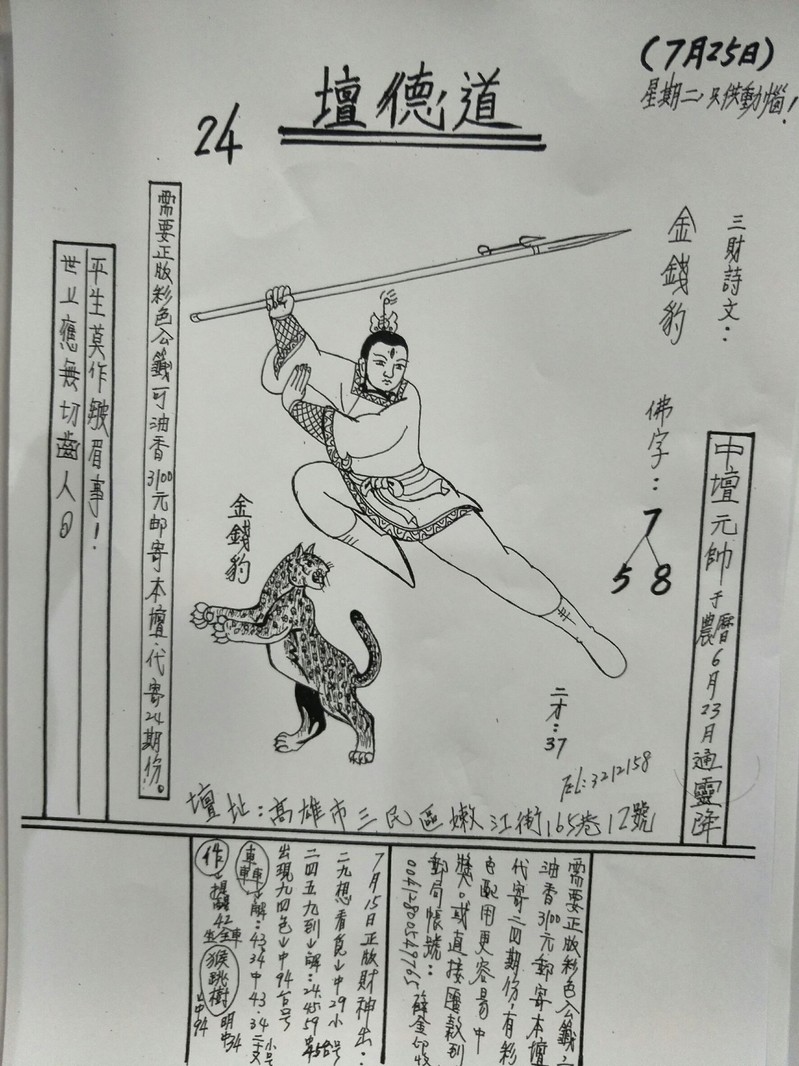 (7月25日)
星期二只供動惱!
24
壇德道
三財詩文:
金錢豹
佛字:
7
5 8
中壇元帥于農曆6月23月通靈降
需要正版彩色公籤可油香3100元邮寄本壇.代寄24期份。
平生莫作皺眉事!
世上應無切齒人。
金錢豹
二才:37
TEL:3212158
壇址:高雄市三民區嫩江街165巷12號
需要正版彩色公籤
油香3100元郵寄本壇
代寄二四期份,有彩
色配用更容易中
獎。或直接匯款到
郵局帳號:
7月15日正版財神出:
二九想看覓↓中29小台号
二四五九到↓解:24.45.59
出現九四色↓中94台号
車↓解:43.34中43.34
作
猴跳樹
明中34